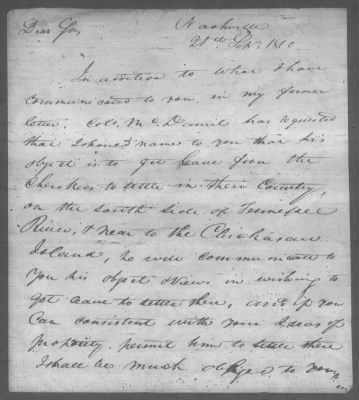 Nashville
Dear Sir, 21st Sep. 1810
In addition to what I have
communicated to you in my former
letter, Colo. McDaniel has requested
that I should name to you that his
object is to get leave from the
Cherokees to settle in their Country,
on the south side of Tennessee
River, & near to the Chickasaw
Island, he will communicate to
you his object & Views in wishing to
get leave to settle there, and if you
Can consistent with your Ideas of
propriety permit him to settle there
I shall be much obliged to you